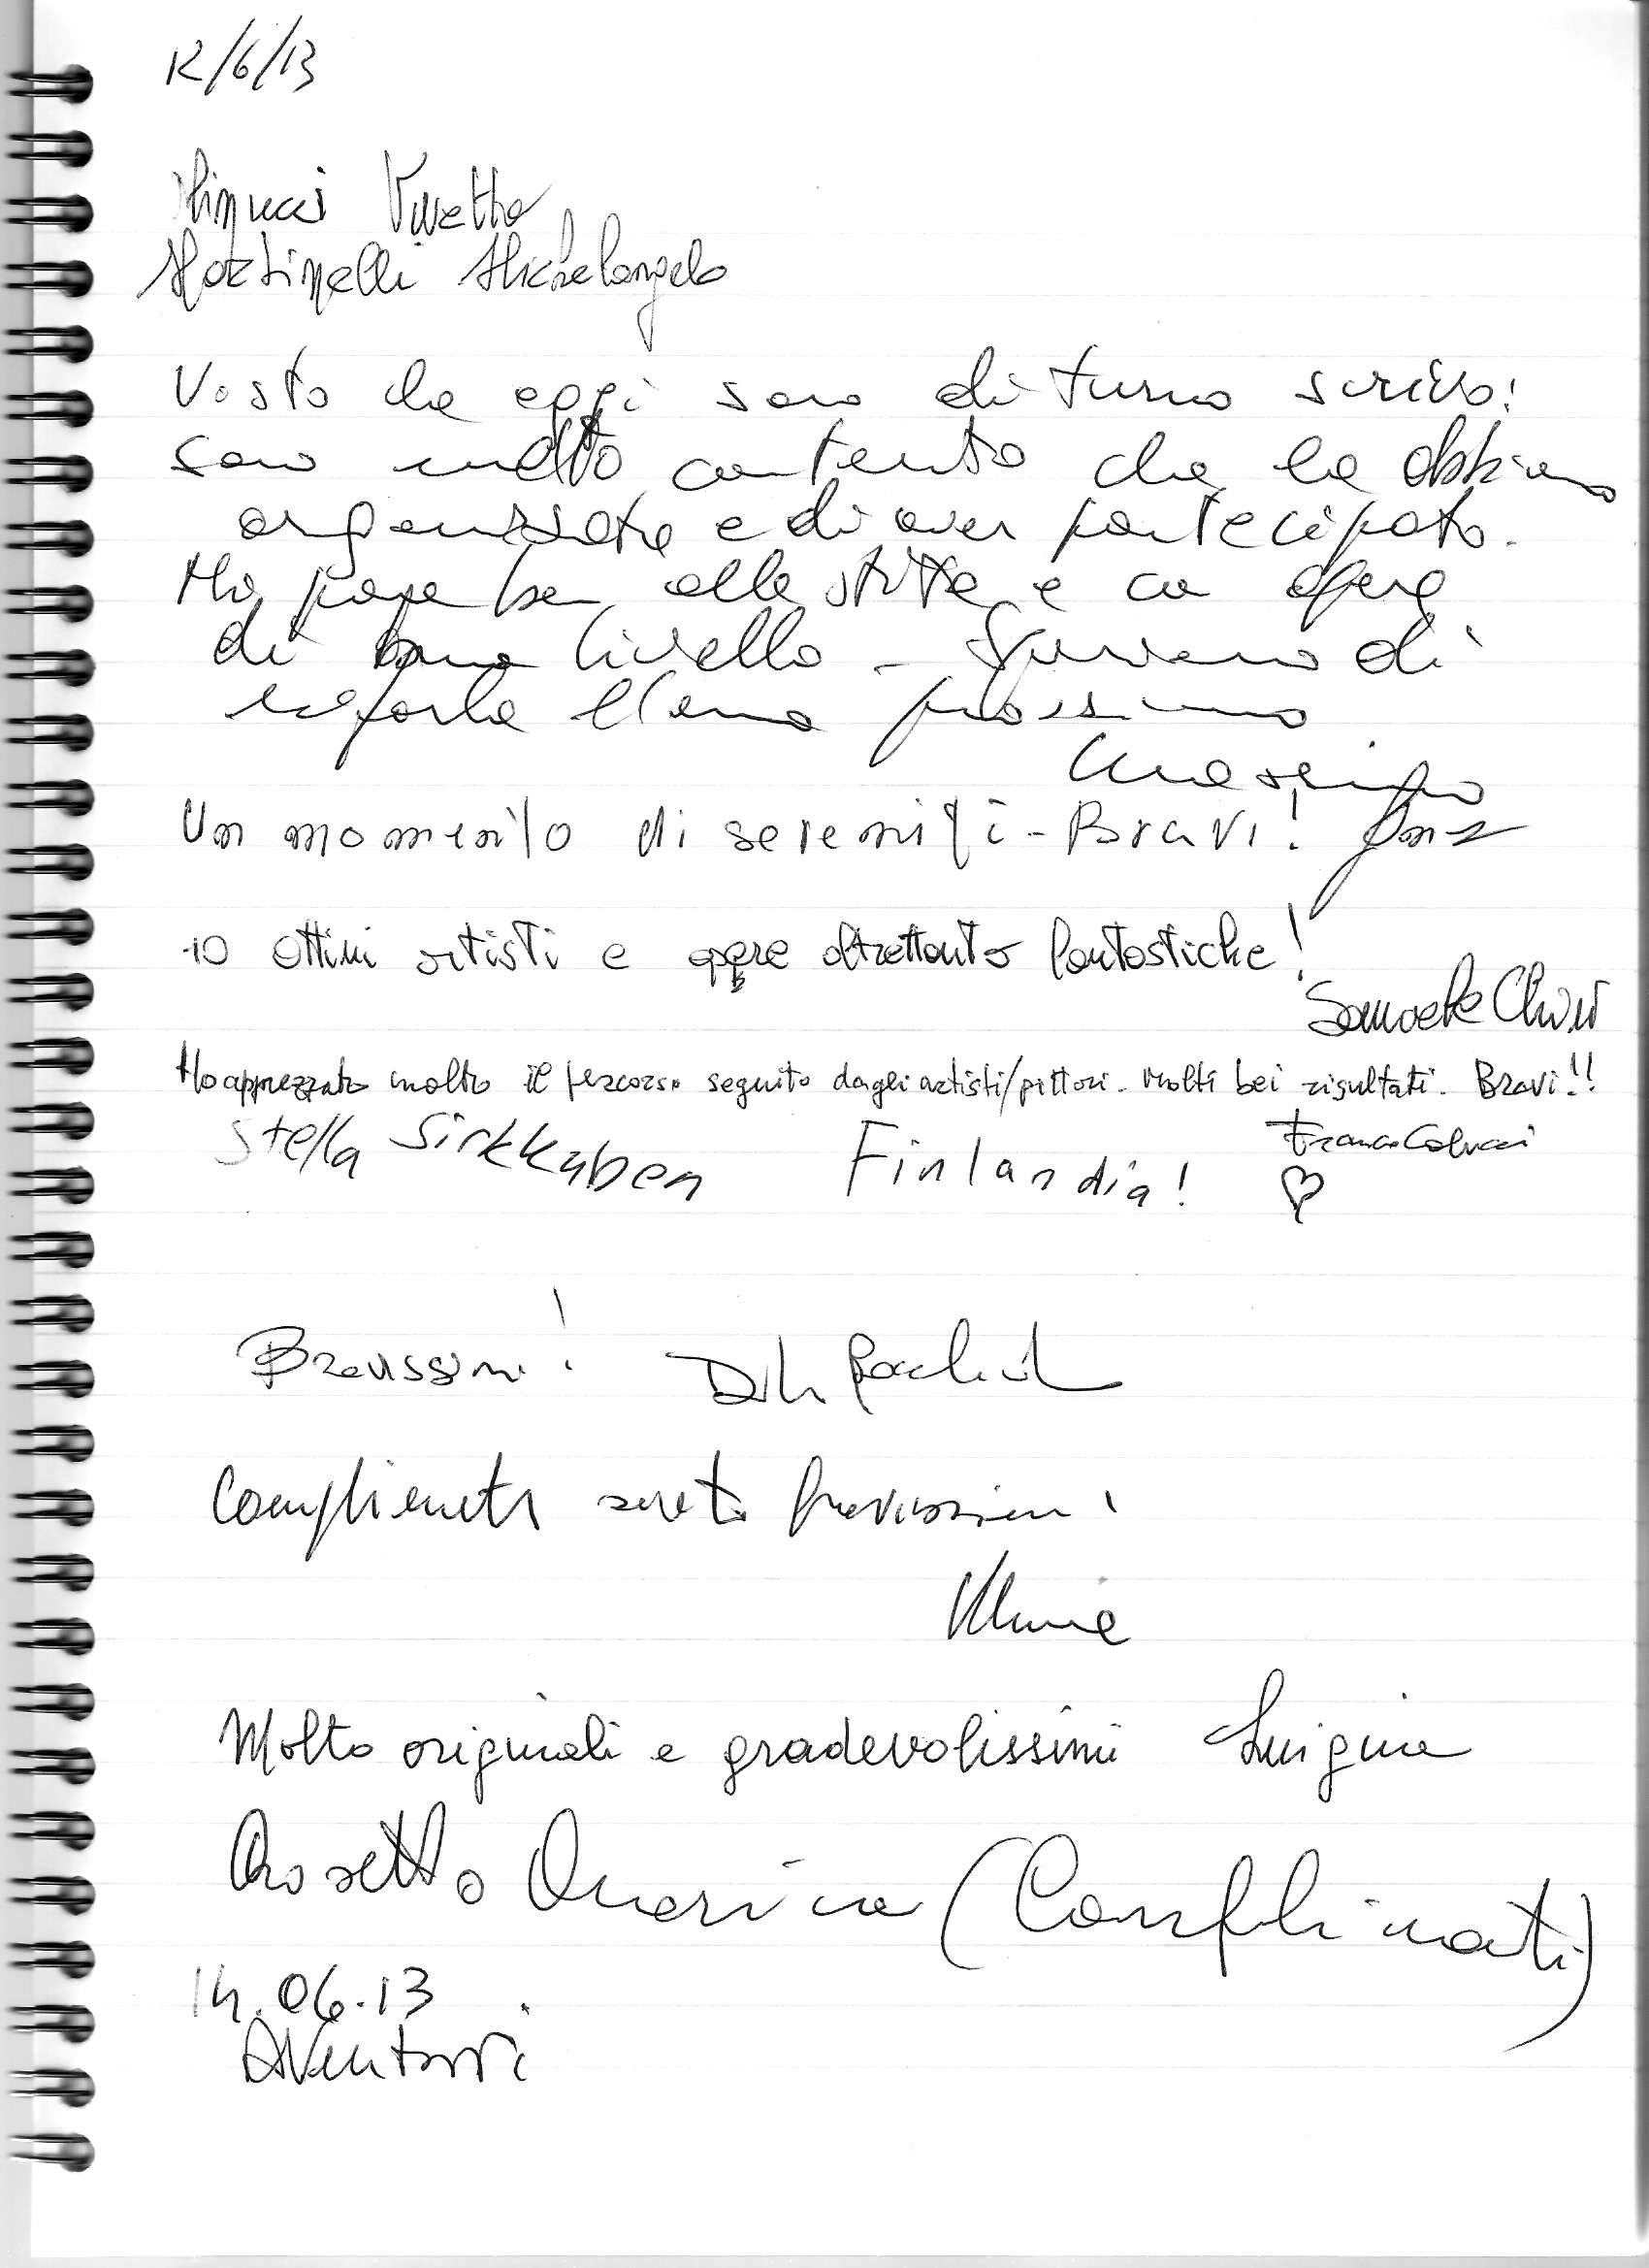 12/6/13
Minucci Vivetta
Martinelli Michelangelo
Visto che oggi sono di turno scrivo:
sono molto contento che la abbiamo
organizzata e di aver partecipato.
ben allestita e con opere
di buon livello - di
rifarla l'anno prossimo
Massimo
Un momento di serenità - Bravi!
10 ottimi artisti e opere altrettanto fantastiche!
Samuele
Ho apprezzato molto il percorso seguito dagli artisti/pittori. Molti bei risultati. Bravi!!
Franco Colucci
Stella Finlandia!
Bravissimi!
Complimenti siete bravissimi!
Molto originali e gradevolissimi Luigina
(Complimenti)
14.06.13